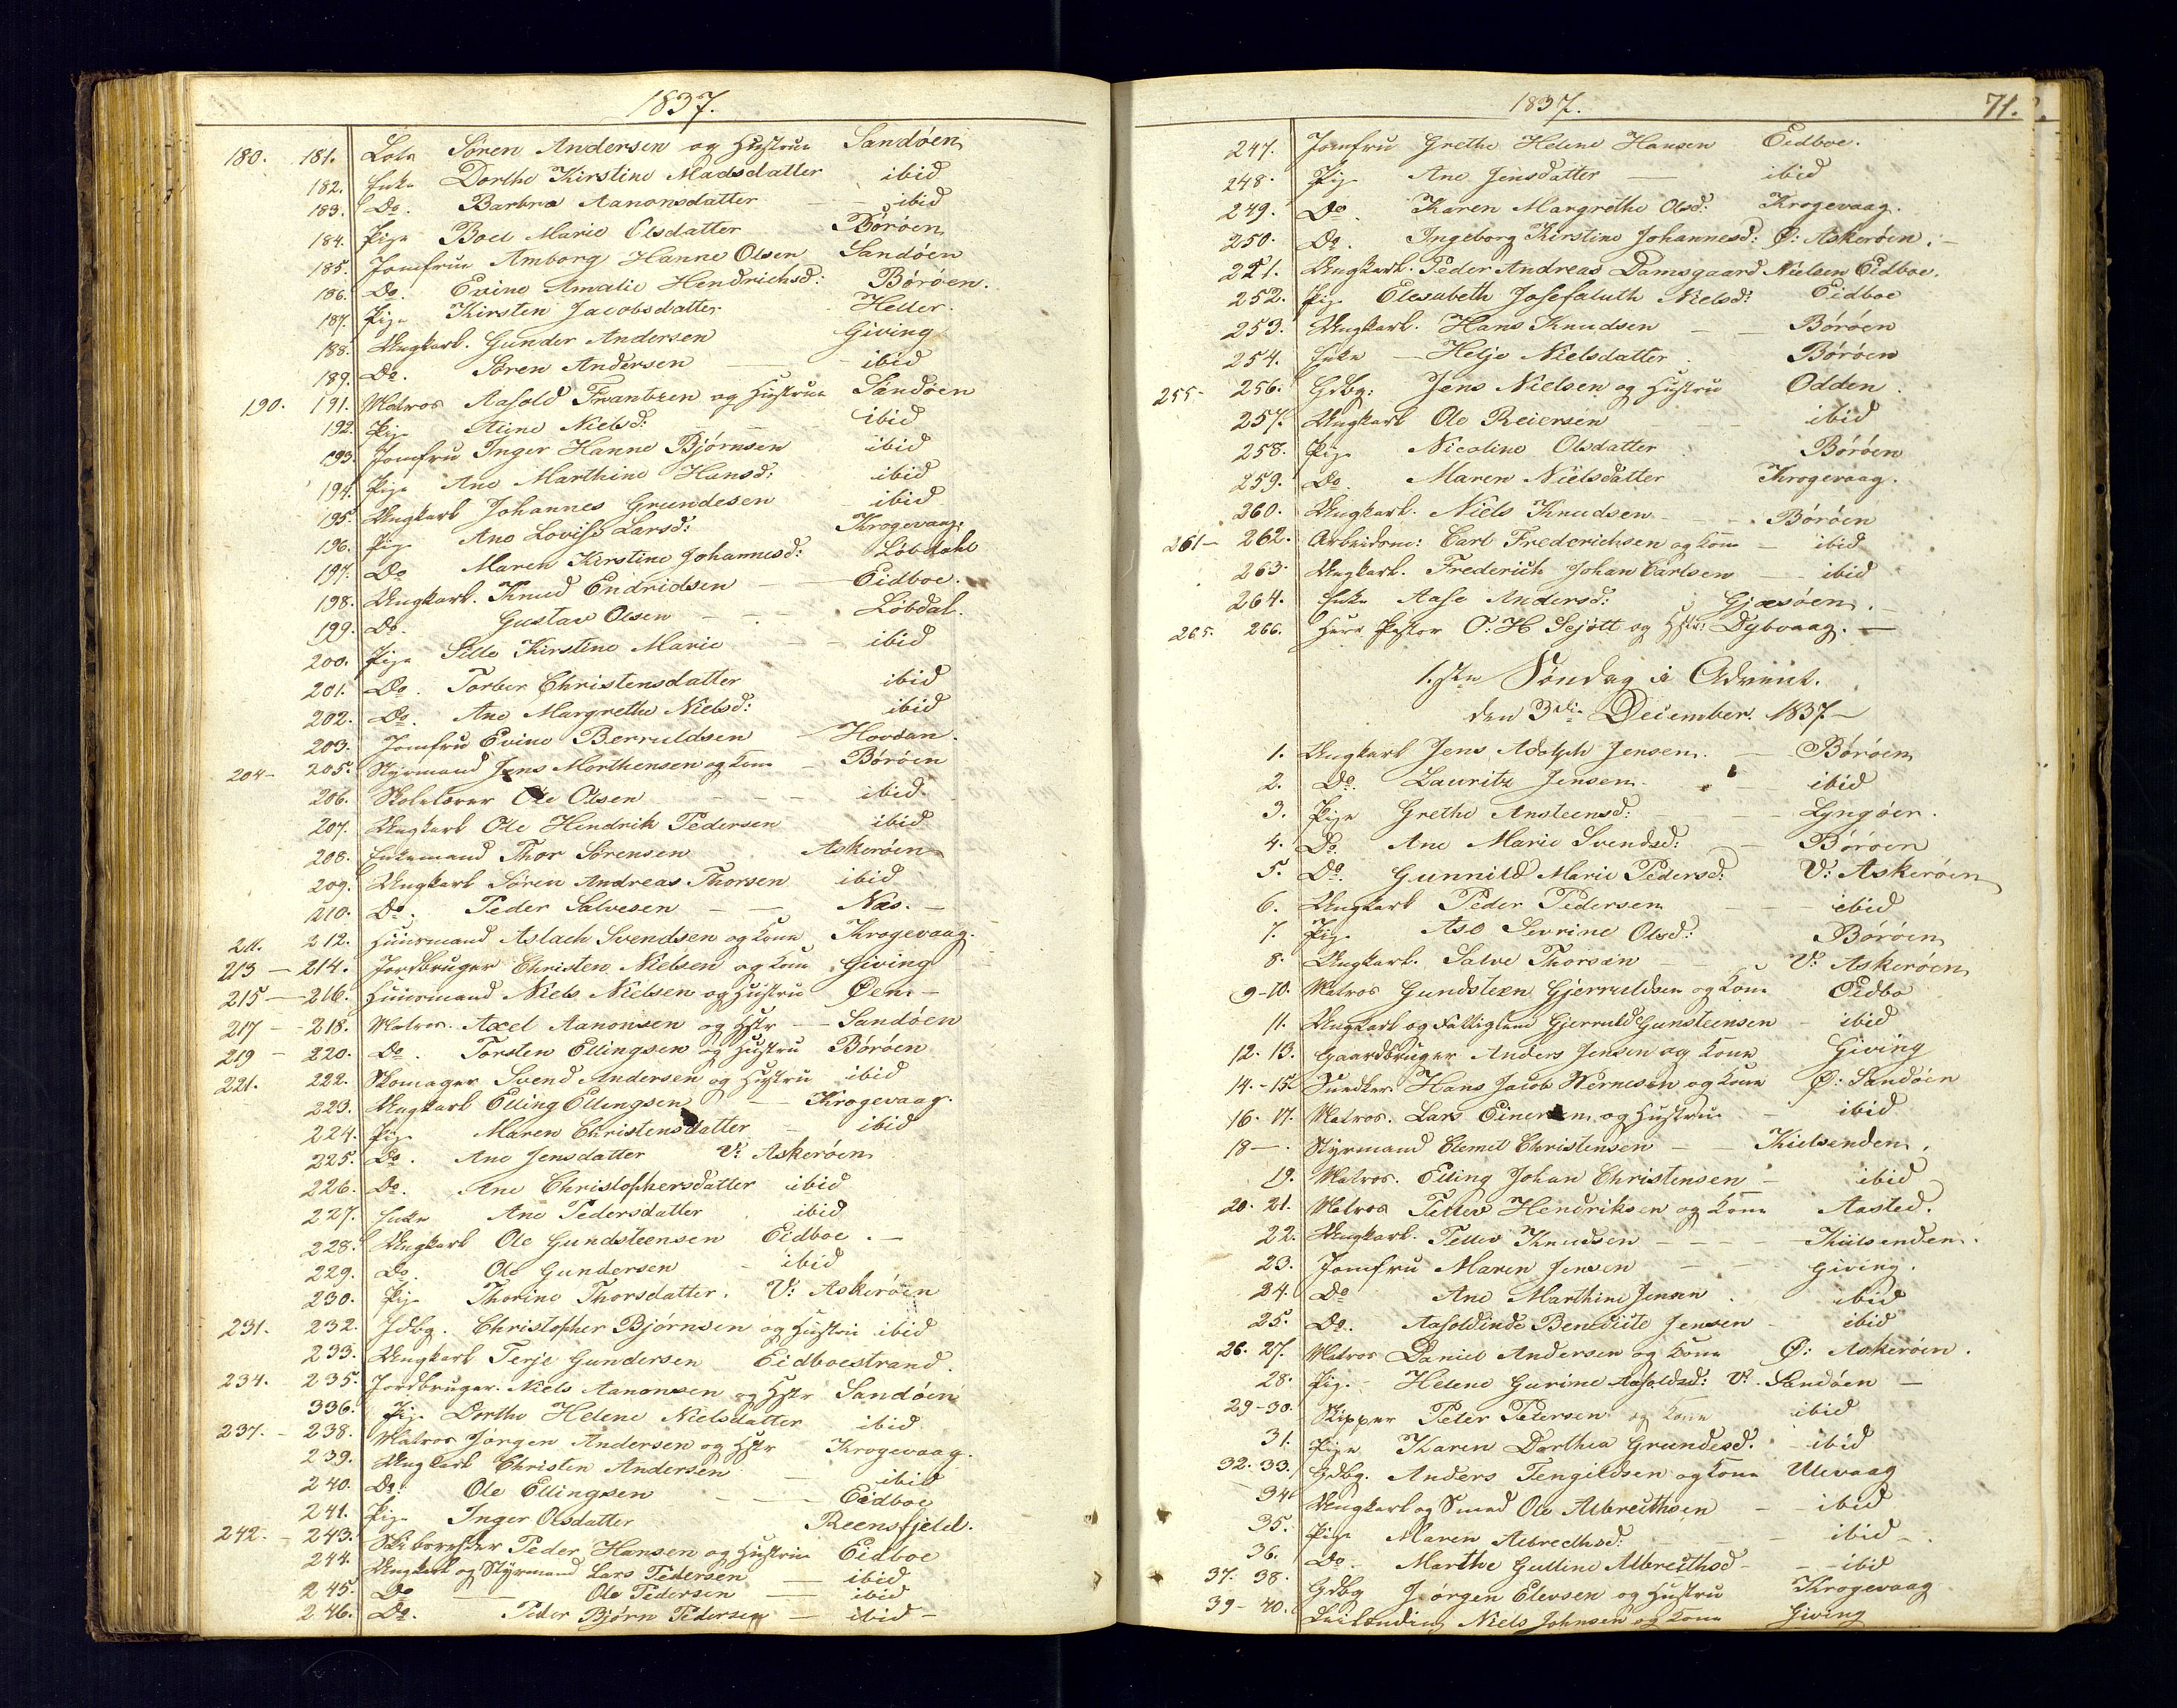 1837.
180. 181. Lods Søren Andersen og Hustrue Sandøen
182. Enke Dorthe Kirstine Madsdatter ibid
183. Do. Barbra Aanonsdatter – ibid
184. Pige Boel Marie Olsdatter Børøen
185. Jomfrue Amborg Hanne Olsen Sandøen
186. Do. Evine Amalie Hendrichsd: Børøen.
187. Pige Kirsten Jacobsdatter Heller.
188. Ungkarl. Gunder Andersen Giving
189. Do. Søren Andersen – ibid
190. 191. Matros Aasold Frantzen og Hustrue Sandøen
192. Pige Stine Nielsd: ibid
193. Jomfru Inger Hanne Bjørnsen ibid
194. Pige Ane Marthine Hansd: ibid
195. Ungkarl Johannes Grundesen – ibid
196. Pige Ane Lovise Larsd: Krogevaag.
197. Do Maren Kirstine Johannesd: Løbdahl
198. Ungkarl. Knud Endridsen – Eidboe.
199. Do. Gustav Olsen – Løbdal.
200. Pige Sille Kirstine Marie – – ibid
201. Do. Torber Christensdatter ibid
202. Do. Ane Margrethe Nielsd: ibid
203. Jomfru Evine Berruldsen – Hovdan.
204 – 205. Styrmand Jens Morthensen og Kone – Børøen
206. Skolelærer Ole Olsen – – – ibid.
207. Ungkarl Ole Hendrik Pedersen ibid
208. Enkemand Thor Sørensen Askerøen
209. Ungkarl Søren Andreas Thorsen ibid
210. Do. Peder Salvesen – – Næs. –
211. 212. Huusmand Aslach Svendsen og Kone Krogevaag.
213 – 214. Jordbruger Christen Nielsen og Kone Giving
215 – 216. Huusmand Niels Nielsen og Hustru Øen –
217 – 218. Matros. Axel Aanonsen og Hstr – Sandøen
219 – 220. Do. Torsten Ellingsen og Hustru Børøen
221. 222. Skomager Svend Andersen og Hustru ibid
223. Ungkarl Elling Ellingsen – Krogevaag.
224. Pige Maren Christensdatter – ibid
225. Do. Ane Jensdatter V: Askerøen
226. Do. Ane Christophersdatter ibid
227. Enke Ane Pedersdatter ibid
228. Ungkarl Ole Gundsteensen Eidboe. –
229. Do. Ole Gundersen – ibid
230. Pige Thorine Thorsdatter. V: Askerøen
231. 232. Jdbg. Christopher Bjørnsen og Hustru ibid
233. Ungkarl Terje Gundersen Eidboestrand.
234. 235. Jordbruger. Niels Aanonsen og Hstr Sandøen
336. Pige Dorthe Helene Nielsdatter ibid.
237. – 238. Matros Jørgen Andersen og Hstr Krogevaag.
239. Ungkarl Christen Andersen – ibid
240. Do. Ole Ellingsen – – Eidboe
241. Pige Inger Olsdatter Reensfjeld.
242. – 243. Peder Hansen og Hustrue Eidboe
244. Ungkarl og Styrmand Lars Pedersen – ibid
245. Do – – Ole Pedersen – ibid
246. Do. Peder Bjørn Pedersen – ibid –
1837. 71.
247. Jomfru Grethe Helene Hansen Eidboe.
248. Pige Ane Jensdatter – ibid
249. Do. Karen Margrethe Olsd: Krogevaag.
250. Do. Ingeborg Kirstine Johannesd: Ø: Askerøen. –
251. Ungkarl. Peder Andreas Damsgaard Nielsen Eidboe.
252. Pige Elesabeth Nielsd: Eidboe
253. Ungkarl. Hans Knudsen – – Børøen
254. Enke – Helje Nielsdatter Børøen
255 – 256. Gdbg: Jens Nielsen og Hustru Odden.
257. Ungkarl Ole Reiersen – – – ibid
258. Pige Nicoline Olsdatter Børøen
259. Do. Maren Nielsdatter Krogevaag.
260. Ungkarl. Niels Knudsen – – Børøen
261 – 262. Arbeidsm: Carl Frederichsen og Kone – ibid
263. Ungkarl. Frederich Johan Carlsen – ibid
264. Enke Aase Andersd: Gjæsøen. –
265. 266. Herr Pastor O: H Sejött og Hstr: Dybvaag. –
1.ste Søndag i Advent.
den 3die December 1837 –
1. Ungkarl Jens Adolph Jensen. – Børøen
2. Do. Lauritz Jensen. – ibid
3. Pige Grethe Ansteensd: – – – Lyngøer.
4. Do. Ane Marie Svendsd: – Børøen
5. Do. Gunnild Marie Pedersd: V: Askerøen
6. Ungkarl Peder Pedersen – – ibid
7. Pige Ase Sevrine Olsd: Børøen
8. Ungkarl. Salve Thorsen – – V: Askerøen
9–10. Matros Gundsteen Gjerruldsen og Kone Eidbo
11. Ungkarl og Fattiglem Gjerruld Gunsteensen – ibid
12. 13. Gaardbruger Anders Jensen og Kone Giving
14. –15. Hans Jacob Wernesen og Kone Ø: Sandøen
16. 17. Matros. Lars Einersen og Hustrue – ibid
18 – . Styrmand Clemet Christensen – Kielsenden.
19. Matros. Elling Johan Christensen – ibid
20. 21. Matros Tellev Hendriksen og Kone Aasted.
22. Ungkarl. Tellev Knudsen – – – Kielsenden.
23. Jomfru Maren Jensen – – Giving.
24. Do Ane Marthine Jensen. ibid
25. Do. Aasoldinde Benedicte Jensen – ibid
26. 27. Matros Daniel Andersen og Kone Ø: Askerøen.
28. Pige. – Helene Gurine Aasoldsd: V: Sandøen –
29–30. Skipper Peter Petersen og Kone ibid
31. Pige Karen Dorthea Grundesd. – ibid
32. 33. Gdbg. Anders Tengildsen og Kone Ulevaag
34 Ungkarl og Smed Ole Albrecthsen – ibid
35. Pige Maren Albrecthsd: – ibid –
36. Do. Marthe Gulline Albrecthsd – – ibid
37. 38. Gdbg Jørgen Elevsen og Hustru Krogevaag
39 – 40. Niels Johnsen og Kone Giving